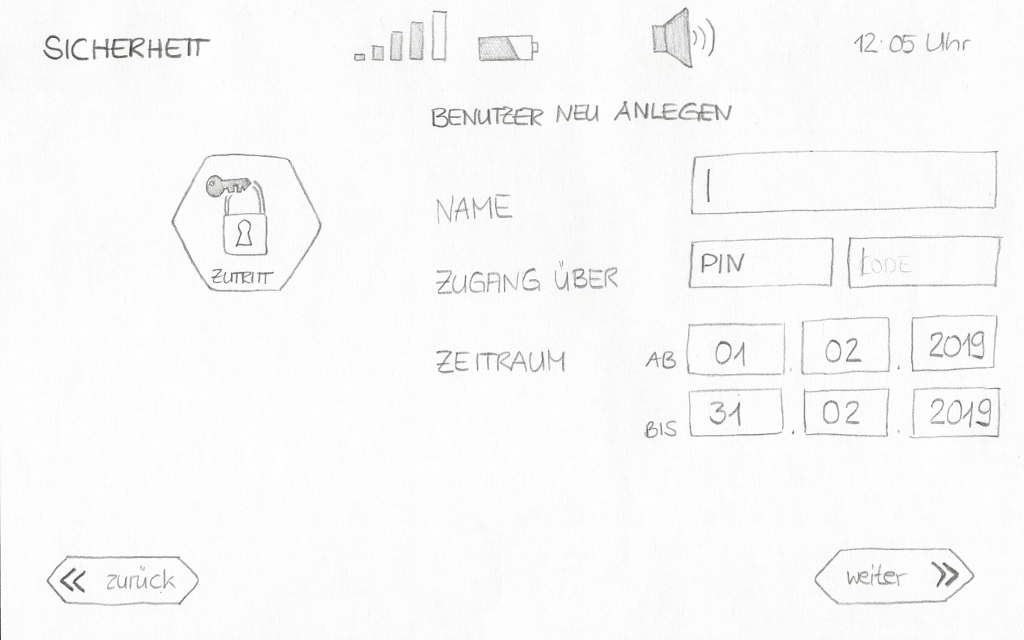 SICHERHEIT
12:05 Uhr
BENUTZER NEU ANLEGEN
NAME
ZUTRITT
ZUGANG ÜBER PIN CODE
ZEITRAUM AB 01.02.2019
BIS 31.02.2019
« zurück
weiter »